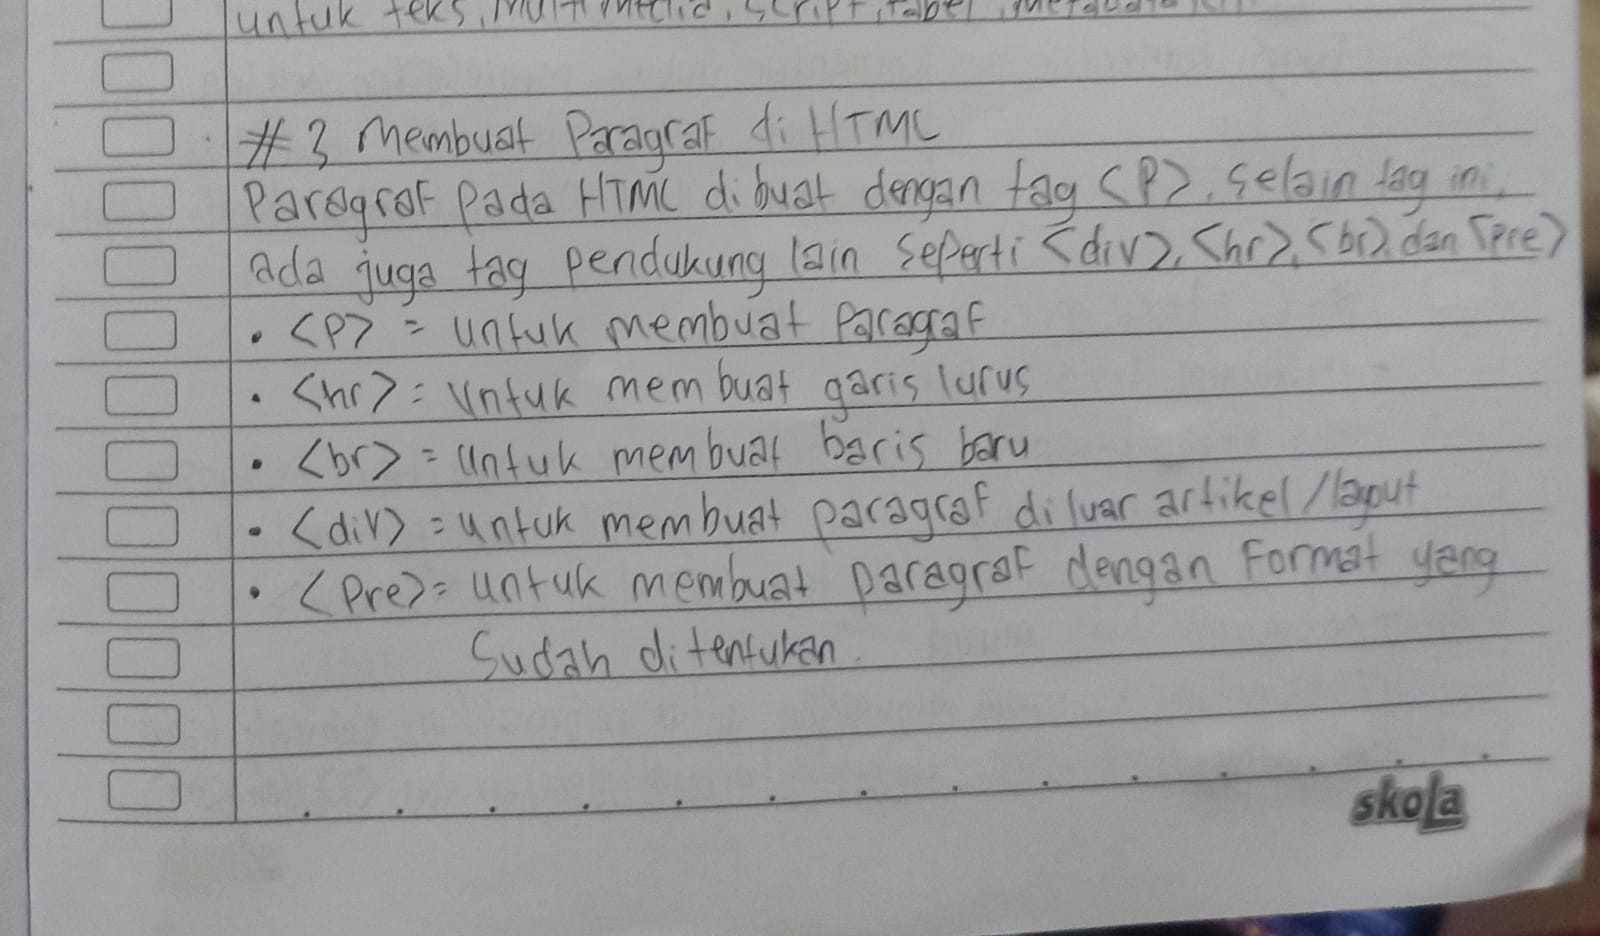 untuk teks, Multimedia, script, tabel, metadata
#3 Membuat Paragraf di HTML
Paragraf Pada HTML dibuat dengan tag <P>. selain tag ini,
ada juga tag pendukung lain seperti <div>, <hr>, <br>, dan <pre>
• <P> = untuk membuat Paragraf
• <hr> = Untuk membuat garis lurus
• <br> = Untuk membuat baris baru
• <div> = untuk membuat paragraf diluar artikel/layout
• <Pre> = untuk membuat paragraf dengan Format yang
Sudah ditentukan.
skola